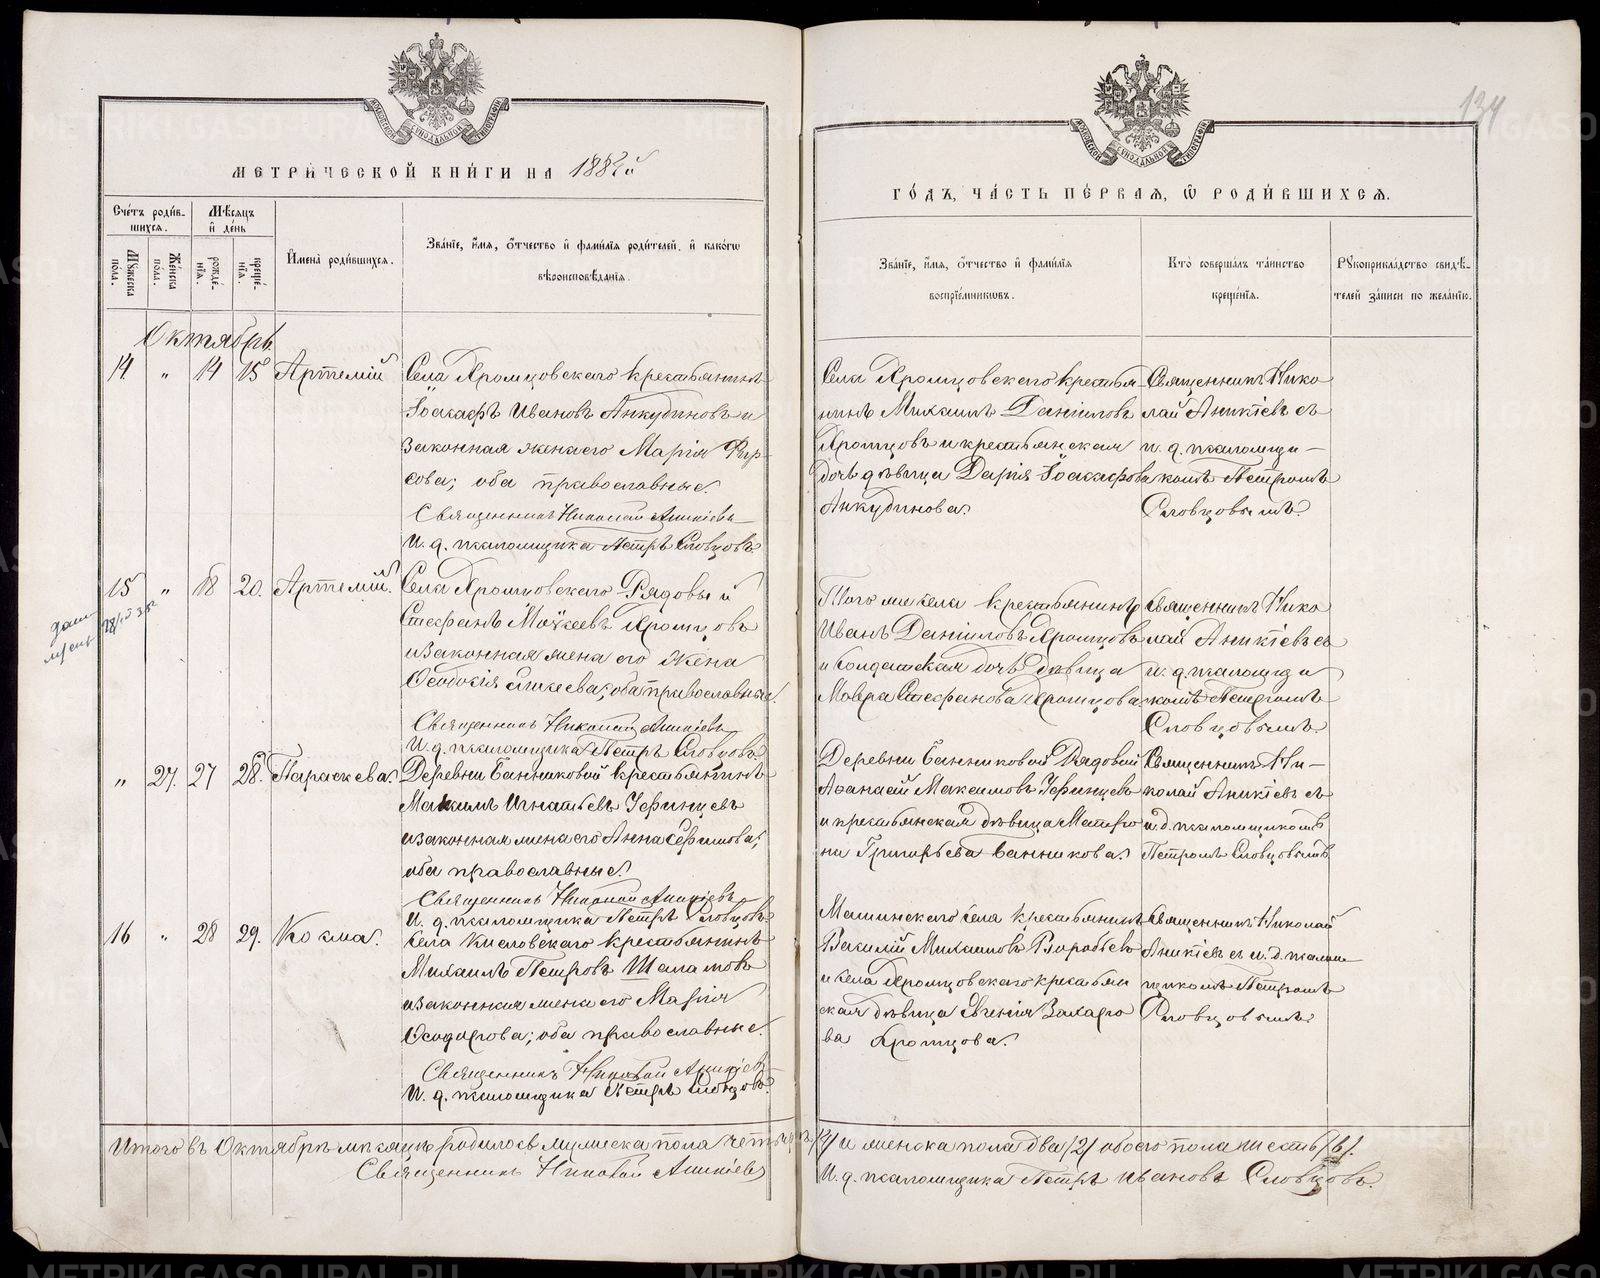 МОСКОВСКОЙ СѴНОДАЛЬНОЙ ТИПОГРАФІИ
МЕТРИ́ЧЕСКОЙ КНИ́ГИ НА
Сче́тъ роди́в-
шихся.
Мѣ́сяцъ
и҆ де́нь
Му́жеска по́ла.
Же́нска по́ла.
рожде́-
нїя.
креще́-
нїя.
И҆мена̀ роди́вшихся.
Зва́нїе, и҆́мя, о҆́тчество и҆ фами́лїя роди́телей, и҆ како́гѡ
вѣроисповѣ́данїя.
Октябрь
14 „ 14 15 Артемій
Села Хромцовскаго крестьянинъ
Іоасафъ Ивановъ Анкудиновъ и
законная жена его Марія Фир-
сова; оба православные.
Священникъ Николай Аникіевъ
И. д. псаломщика Петръ Словцовъ
15 „ 18 20. Артемій.
Села Хромцовскаго Рядовый
Стефанъ Хромцовъ
и законная жена его жена
оба православные.
Священникъ Николай Аникіевъ
И. д. псаломщика Петръ Словцовъ
„ 27. 27 28. Параскева.
Деревни Банниковой крестьянинъ
Максимъ Игнатьевъ Уфинцевъ
и законная жена его Анна Ефимова;
оба православные.
Священникъ Николай Аникіевъ
И. д. псаломщика Петръ Словцовъ
16 „ 28 29. Козма.
Села Кисловскаго крестьянинъ
Михаилъ Петровъ Шеламовъ
и законная жена его Марія
Ѳеодорова; оба православные.
Священникъ Николай Аникіевъ
И. д. псаломщика Петръ Словцовъ
Итого въ Октябрѣ мѣсяцѣ родилось мужеска пола четыре
Священникъ Николай Аникіевъ
134
МОСКОВСКОЙ СѴНОДАЛЬНОЙ ТИПОГРАФІИ
ГО́ДЪ, ЧА́СТЬ ПЕ́РВАЯ, Ѽ РОДИ́ВШИХСЯ.
Зва́нїе, и҆́мя, о҆́тчество и҆ фами́лїя
воспрїе́мникѡвъ.
Кто̀ соверша́лъ та́инство
креще́нїя.
Рꙋкоприкла́дство свидѣ́-
телей за́писи по жела́нїю.
Села Хромцовскаго крестья-
нинъ Михаилъ Даніиловъ
Хромцовъ и крестьянская
дочь дѣвица Дарія Іоасафова
Анкудинова.
Священникъ Нико
лай Аникіевъ съ
и. д. псаломщи-
комъ Петромъ
Словцовымъ.
Того же села крестьянинъ
Иванъ Даніиловъ Хромцовъ
и Солдатская дочь дѣвица
Мавра Стефанова Хромцова
Священникъ Нико
лай Аникіевъ съ
и. д. псаломщи
комъ Петромъ
Словцовымъ
Деревни Банниковой Рядовой
Аѳанасій Максимовъ Уфинцевъ
и крестьянская дѣвица Матро
на Григорьева Банникова.
Священникъ Ни-
колай Аникіевъ съ
и. д. псаломщикомъ
Петромъ Словцовымъ
Маминскаго села крестьянинъ
Василій Михаиловъ Воробьевъ
и села Хромцовскаго крестьян
ская дѣвица Евгенія Захаро
ва Хромцова.
Священникъ Николай
Аникіевъ съ и. д. псалом
щикомъ Петромъ
Словцовымъ
/4/ и женска пола два /2/ обоего пола шесть /6/.
И. д. псаломщика Петръ Ивановъ Словцовъ.
METRIKI.GASO-URAL.RU